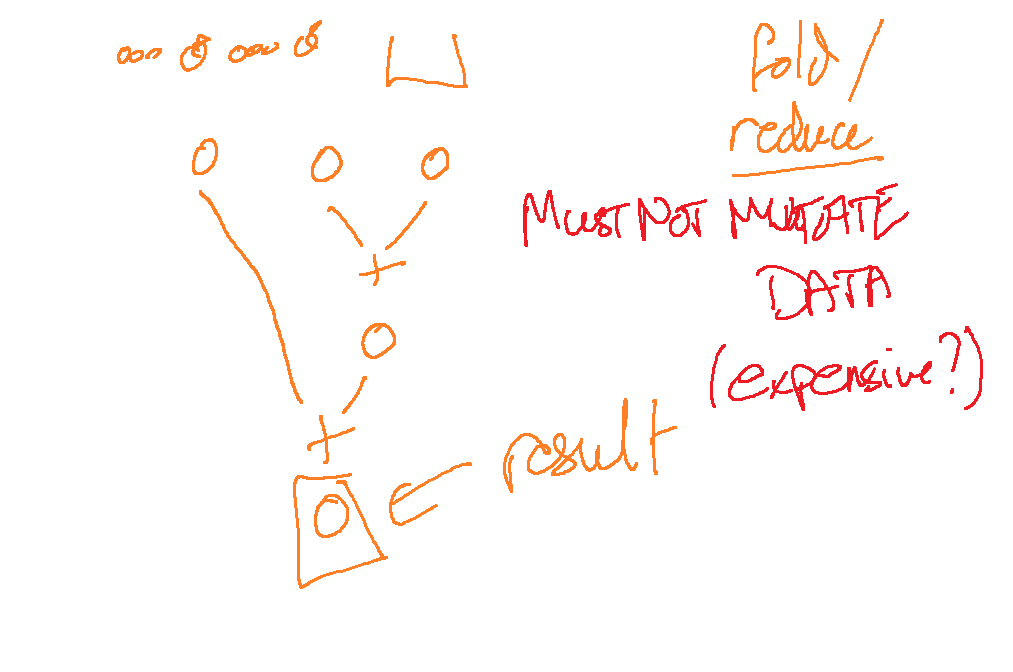 fold/
reduce
MUST NOT MUTATE
DATA
(expensive?)
+
+
result